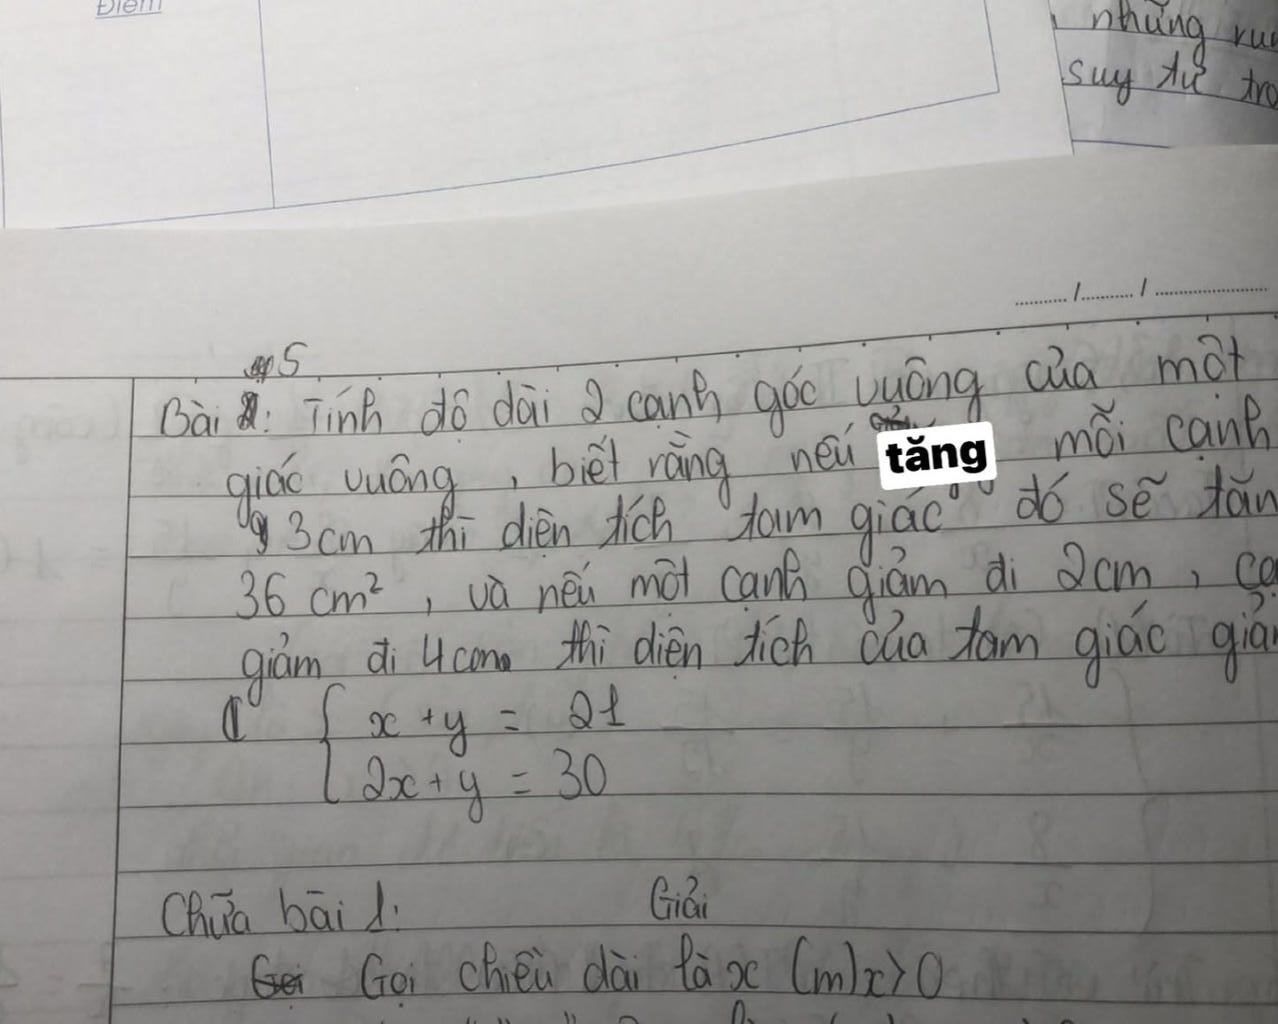 Điểm
những
suy tư
5
Bài : Tính độ dài 2 cạnh góc vuông của một
giác vuông, biết rằng nếu tăng mỗi cạnh
3cm thì diện tích tam giác đó sẽ tăn
36 cm², và nếu một cạnh giảm đi 2cm,
giảm đi 4cm thì diện tích của tam giác
x + y = 21
2x + y = 30
Chữa bài 1: Giải
Gọi chiều dài là x (m) x > 0